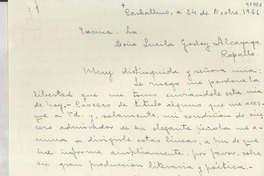 Carballino, a 24 de Octbre. 1951
Excma. Sra.
Doña Lucila Godoy Alcayaga
Rapallo.
Muy distinguida y señora mía:
Le ruego me perdone la
libertad que me tomo enviándole esta mía
de hoy. Carezco de título alguno que me acer-
que a Vd. y, solamente, mi condición de sin-
cero admirador de su elegante pluma me a-
nima a dirigirle estas líneas, a fin de que
me informe ampliamente, por favor, sobre
su gran producción literaria y poética.